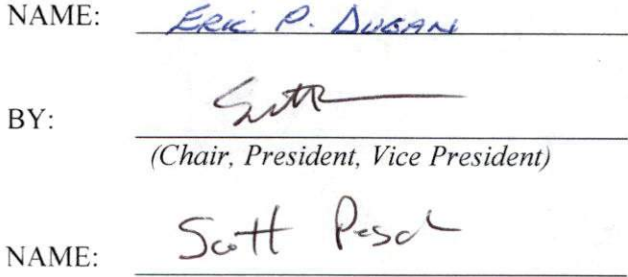 NAME: ERIC P. DUGAN
BY:
(Chair, President, Vice President)
NAME: Scott Pesch